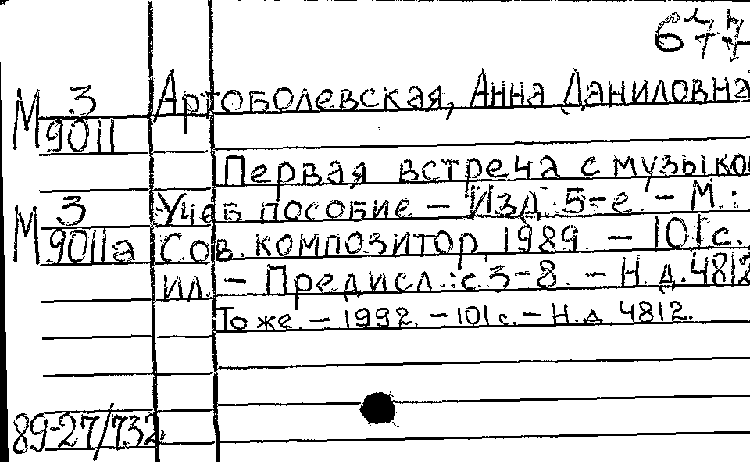 677
М 3
9011
Артоболевская, Анна Даниловна
Первая встреча с музыкой
Учеб пособие – Изд. 5-е. – М.:
М 3
9011а
Сов. композитор, 1989 – 101 с.
ил. – Предисл.: с 3-8. – Н. д. 4812
То же. – 1992. – 101 с. – Н. д 4812.
89-27/732